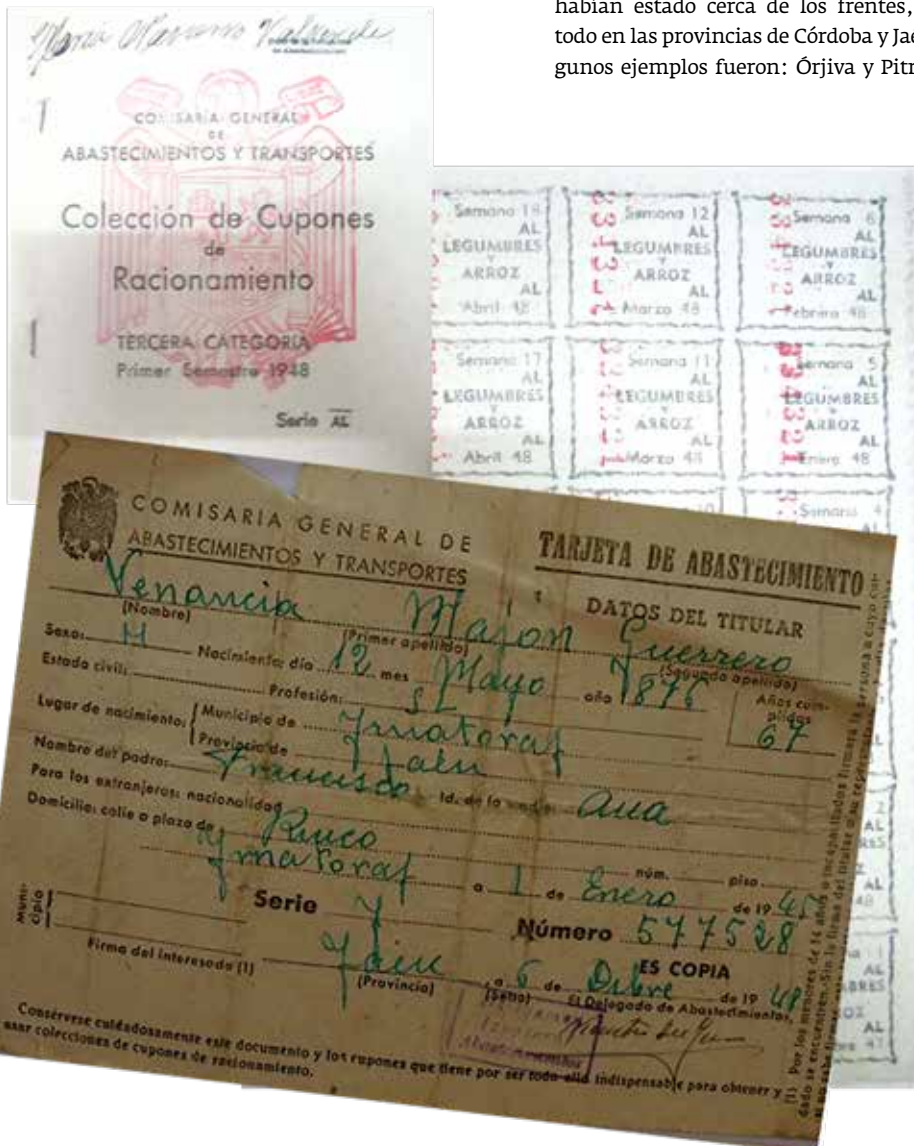 habían estado cerca de los frentes,
todo en las provincias de Córdoba y Jae
gunos ejemplos fueron: Órjiva y Pitr
María Navarro Valverde
COMISARÍA GENERAL
DE
ABASTECIMIENTOS Y TRANSPORTES
Colección de Cupones
de
Racionamiento
TERCERA CATEGORÍA
Primer Semestre 1948
Serie AL
Semana 18
AL
LEGUMBRES
Y
ARROZ
AL
Abril 48
Semana 12
AL
LEGUMBRES
Y
ARROZ
AL
Marzo 48
Semana 6
AL
LEGUMBRES
Y
ARROZ
AL
Febrero 48
Semana 17
AL
LEGUMBRES
Y
ARROZ
AL
Abril 48
Semana 11
AL
LEGUMBRES
Y
ARROZ
AL
Marzo 48
Semana 5
AL
LEGUMBRES
Y
ARROZ
AL
Enero 48
Semana 4
COMISARIA GENERAL DE
ABASTECIMIENTOS Y TRANSPORTES
TARJETA DE ABASTECIMIENTO
DATOS DEL TITULAR
Venancia Majon Guerrero
(Nombre) (Primer apellido) (Segundo apellido)
Sexo: H Nacimiento: día 12 mes Mayo año 1876
Años cumplidos
67
Estado civil: Profesión: S L
Lugar de nacimiento: Municipio de Yznatoraf
Provincia de Jaén
Nombre del padre: Francisco Id. de la madre: Ana
Para los extranjeros: nacionalidad
Domicilio: calle o plaza de núm. piso
Yznatoraf a 1 de Enero de 19 45
Serie J Número 577528
Municipio
Firma del interesado (1)
Jaén a 6 de Dibre de 19 48
(Provincia) (Sello)
ES COPIA
El Delegado de Abastecimientos,
Consérvese cuidadosamente este documento y los cupones que tiene por ser todo ello indispensable para obtener y
usar colecciones de cupones de racionamiento.
(1) Por los menores de 14 años o incapacitados firmará la persona a cuyo cui-